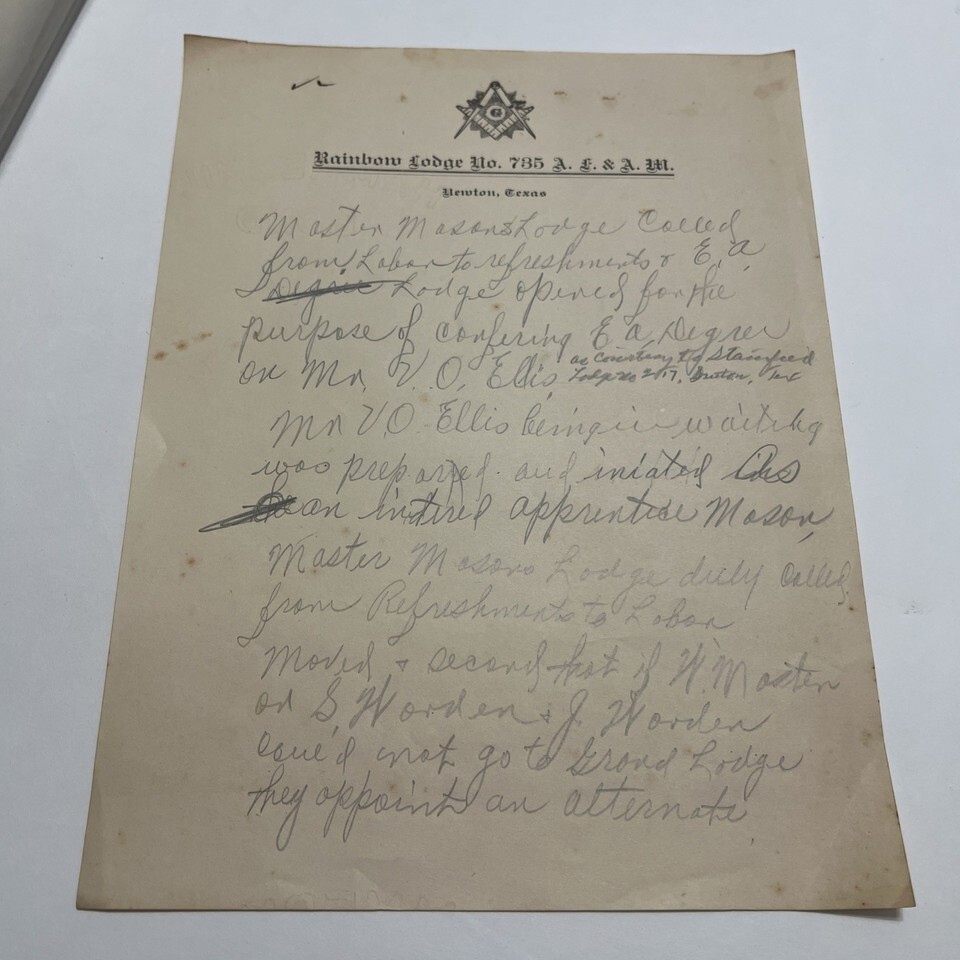 G
Rainbow Lodge No. 735 A. F. & A. M.
Newton, Texas
Master Masons Lodge Called
from Labor to refreshments & E. A
Degree Lodge opened for the
purpose of confering E A, Degree
on Mr, V. O, Ellis, as Courtesy to
Lodge no
Mr V. O. Ellis being in waiting
was prepared and iniated As
an intired apprentice Mason,
Master Masons Lodge duly Called,
from Refreshments to Labor
Moved & second that if W. Master
or S, Worden & J. Worden
coue'd not go to Grand Lodge
they appoint an alternate,